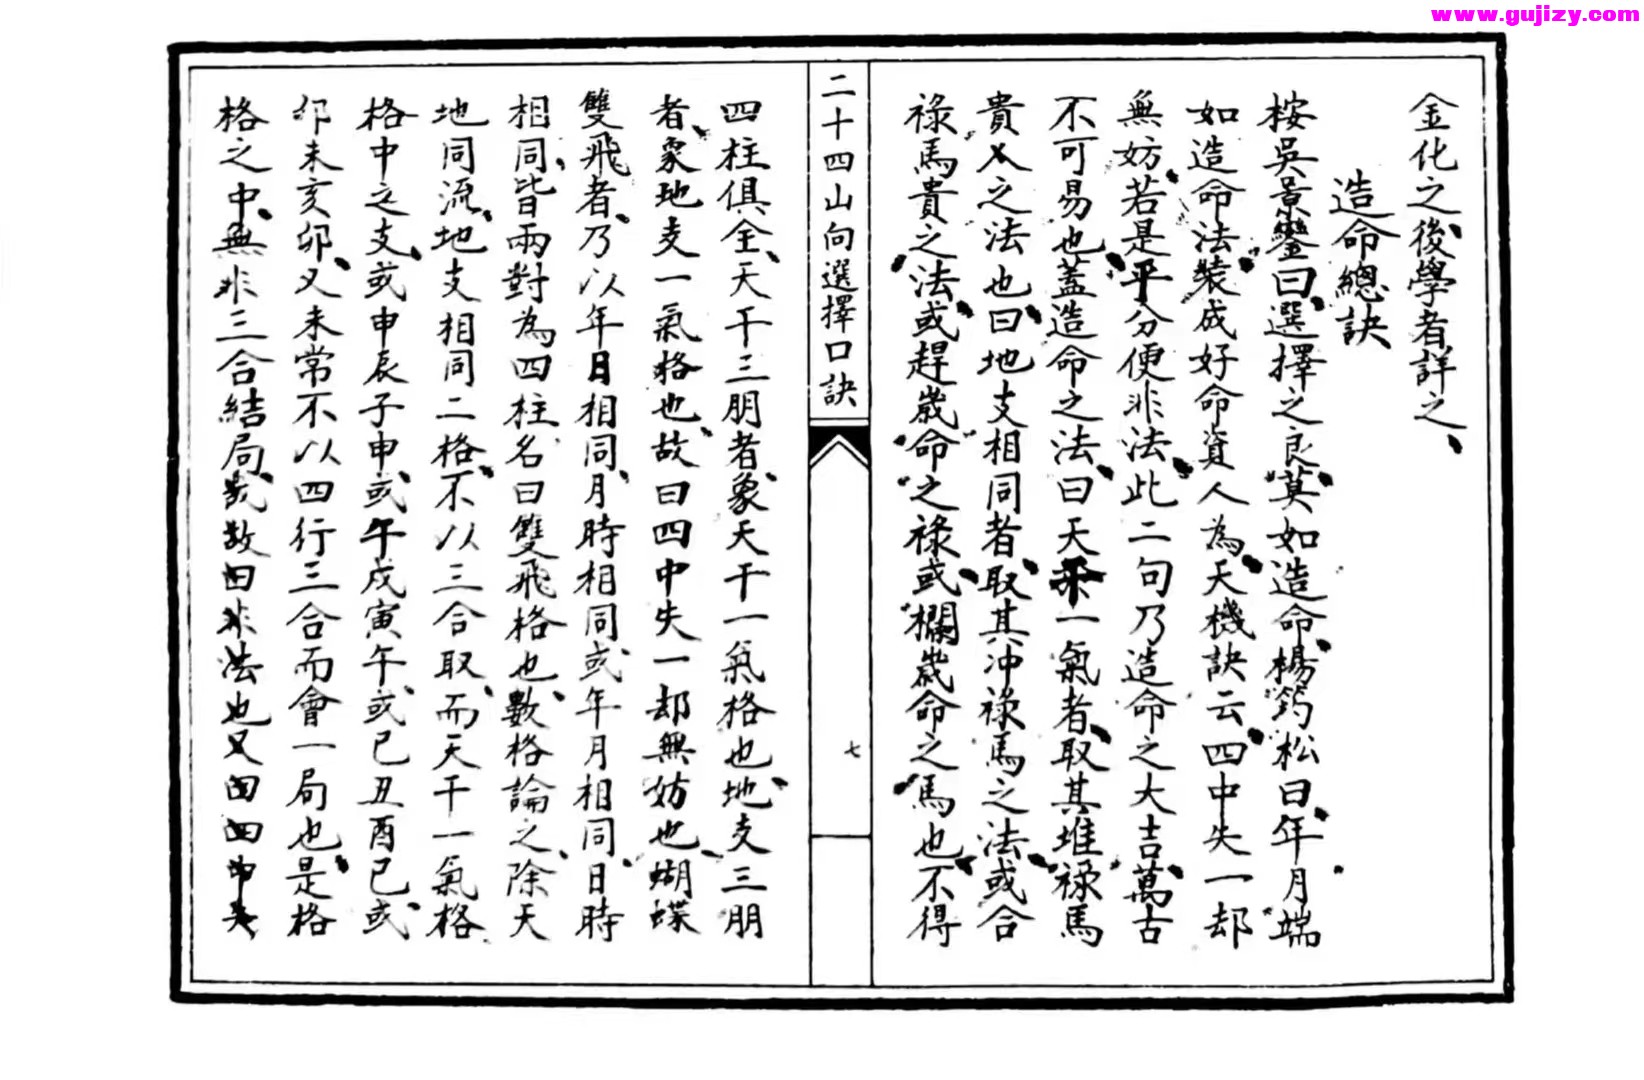 www.gujizy.com
金化之後學者詳之
造命總訣
桉吳景鑾曰選擇之良莫如造命楊筠松曰年月端
如造命法裝成好命資人為天機訣云四中失一却
無妨若是平分便非法此二句乃造命之大吉萬古
不可易也蓋造命之法曰天一氣者取其堆祿馬
貴人之法也曰地支相同者取其冲祿馬之法或合
祿馬貴之法或趕歲命之祿或欄歲命之馬也不得
二十四山向選擇口訣
七
四柱俱全天干三朋者象天干一氣格也地支三朋
者象地支一氣格也故曰四中失一却無妨也蝴蝶
雙飛者乃以年日相同月時相同或年月相同日時
相同皆兩對為四柱名曰雙飛格也數格論之除天
地同流地支相同二格不以三合取而天干一氣格
格中之支或申辰子申或午戌寅午或巳丑酉巳或
卯未亥卯又未常不以四行三合而會一局也是格
格之中無非三合結局故曰非法也又曰四中失